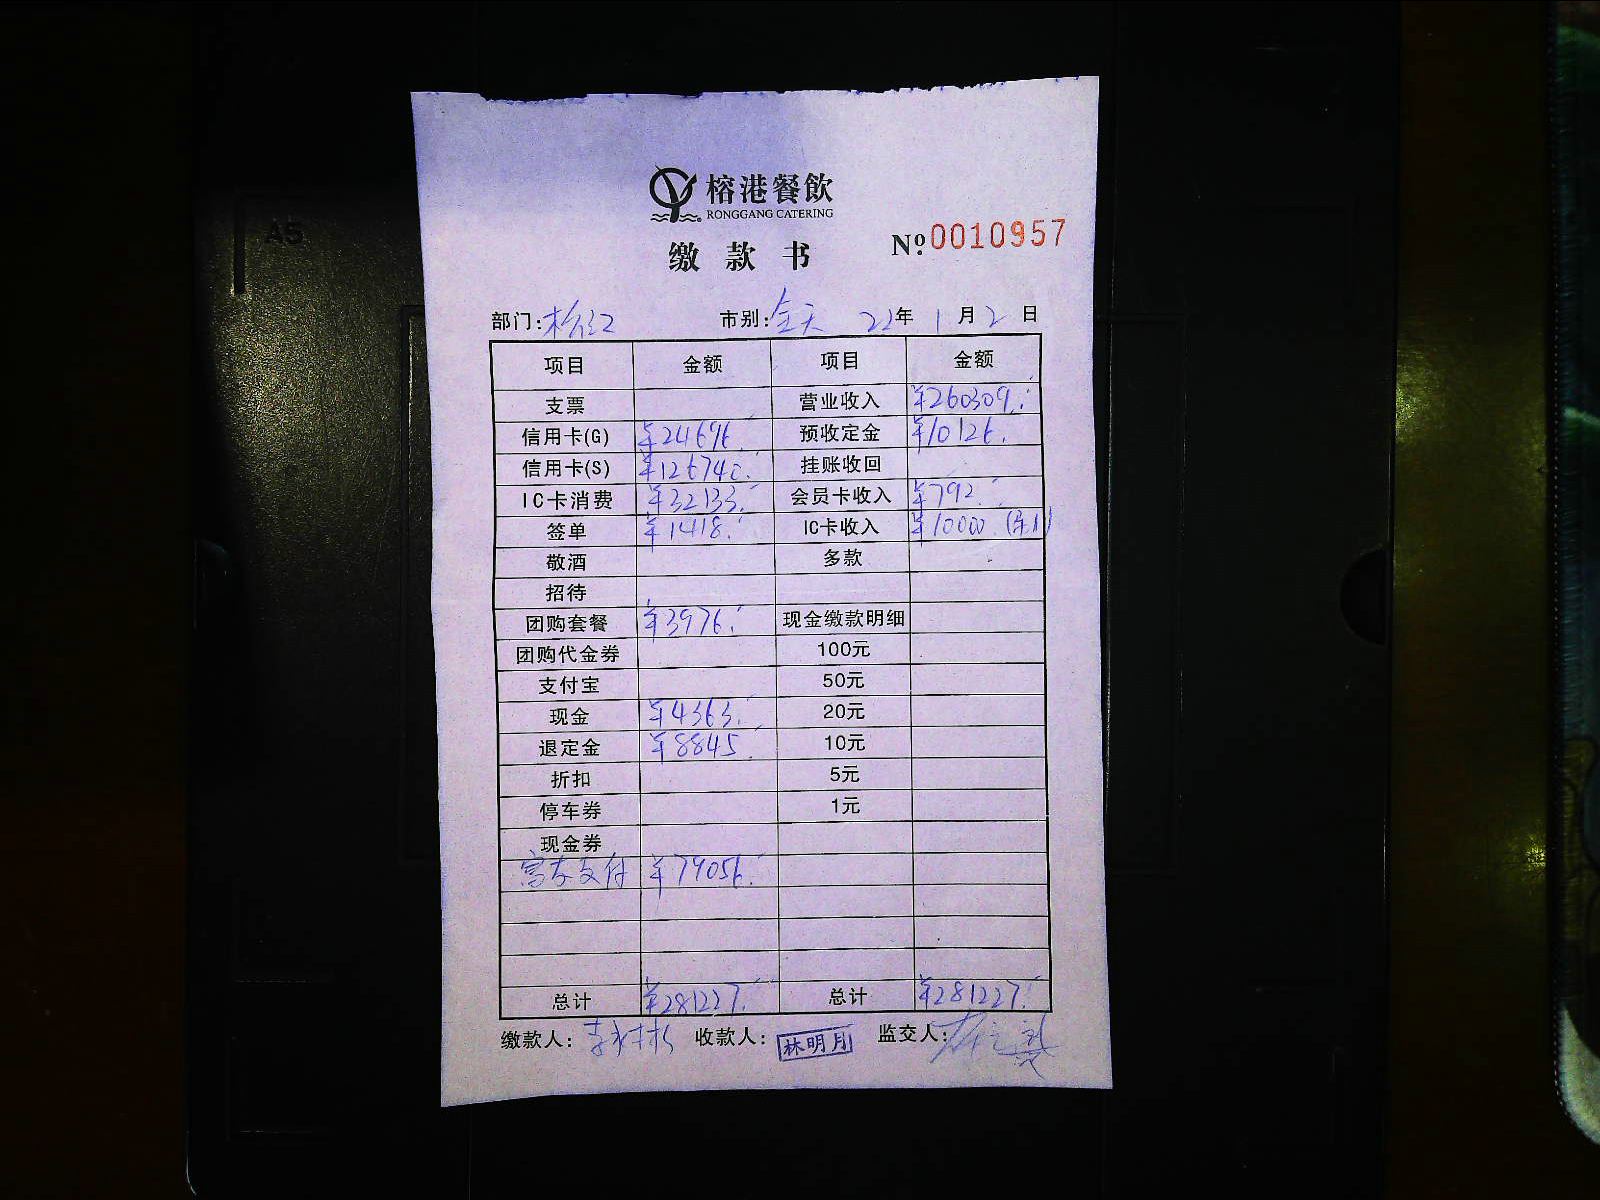 A5
榕港餐飲
RONGGANG CATERING
缴款书
№0010957
部门: 市别:全天 22年 1月2日
项目 金额 项目 金额
支票 营业收入 ¥260309.
信用卡(G) ¥24696. 预收定金 ¥10126.
信用卡(S) ¥126740. 挂账收回
IC卡消费 ¥32133. 会员卡收入 ¥792.
签单 ¥1418. IC卡收入 ¥10000.
敬酒 多款
招待
团购套餐 ¥3976. 现金缴款明细
团购代金券 100元
支付宝 50元
现金 ¥4363. 20元
退定金 ¥8845. 10元
折扣 5元
停车券 1元
现金券
富友支付 ¥79056.
总计 ¥281227. 总计 ¥281227.
缴款人: 收款人:林明月 监交人: